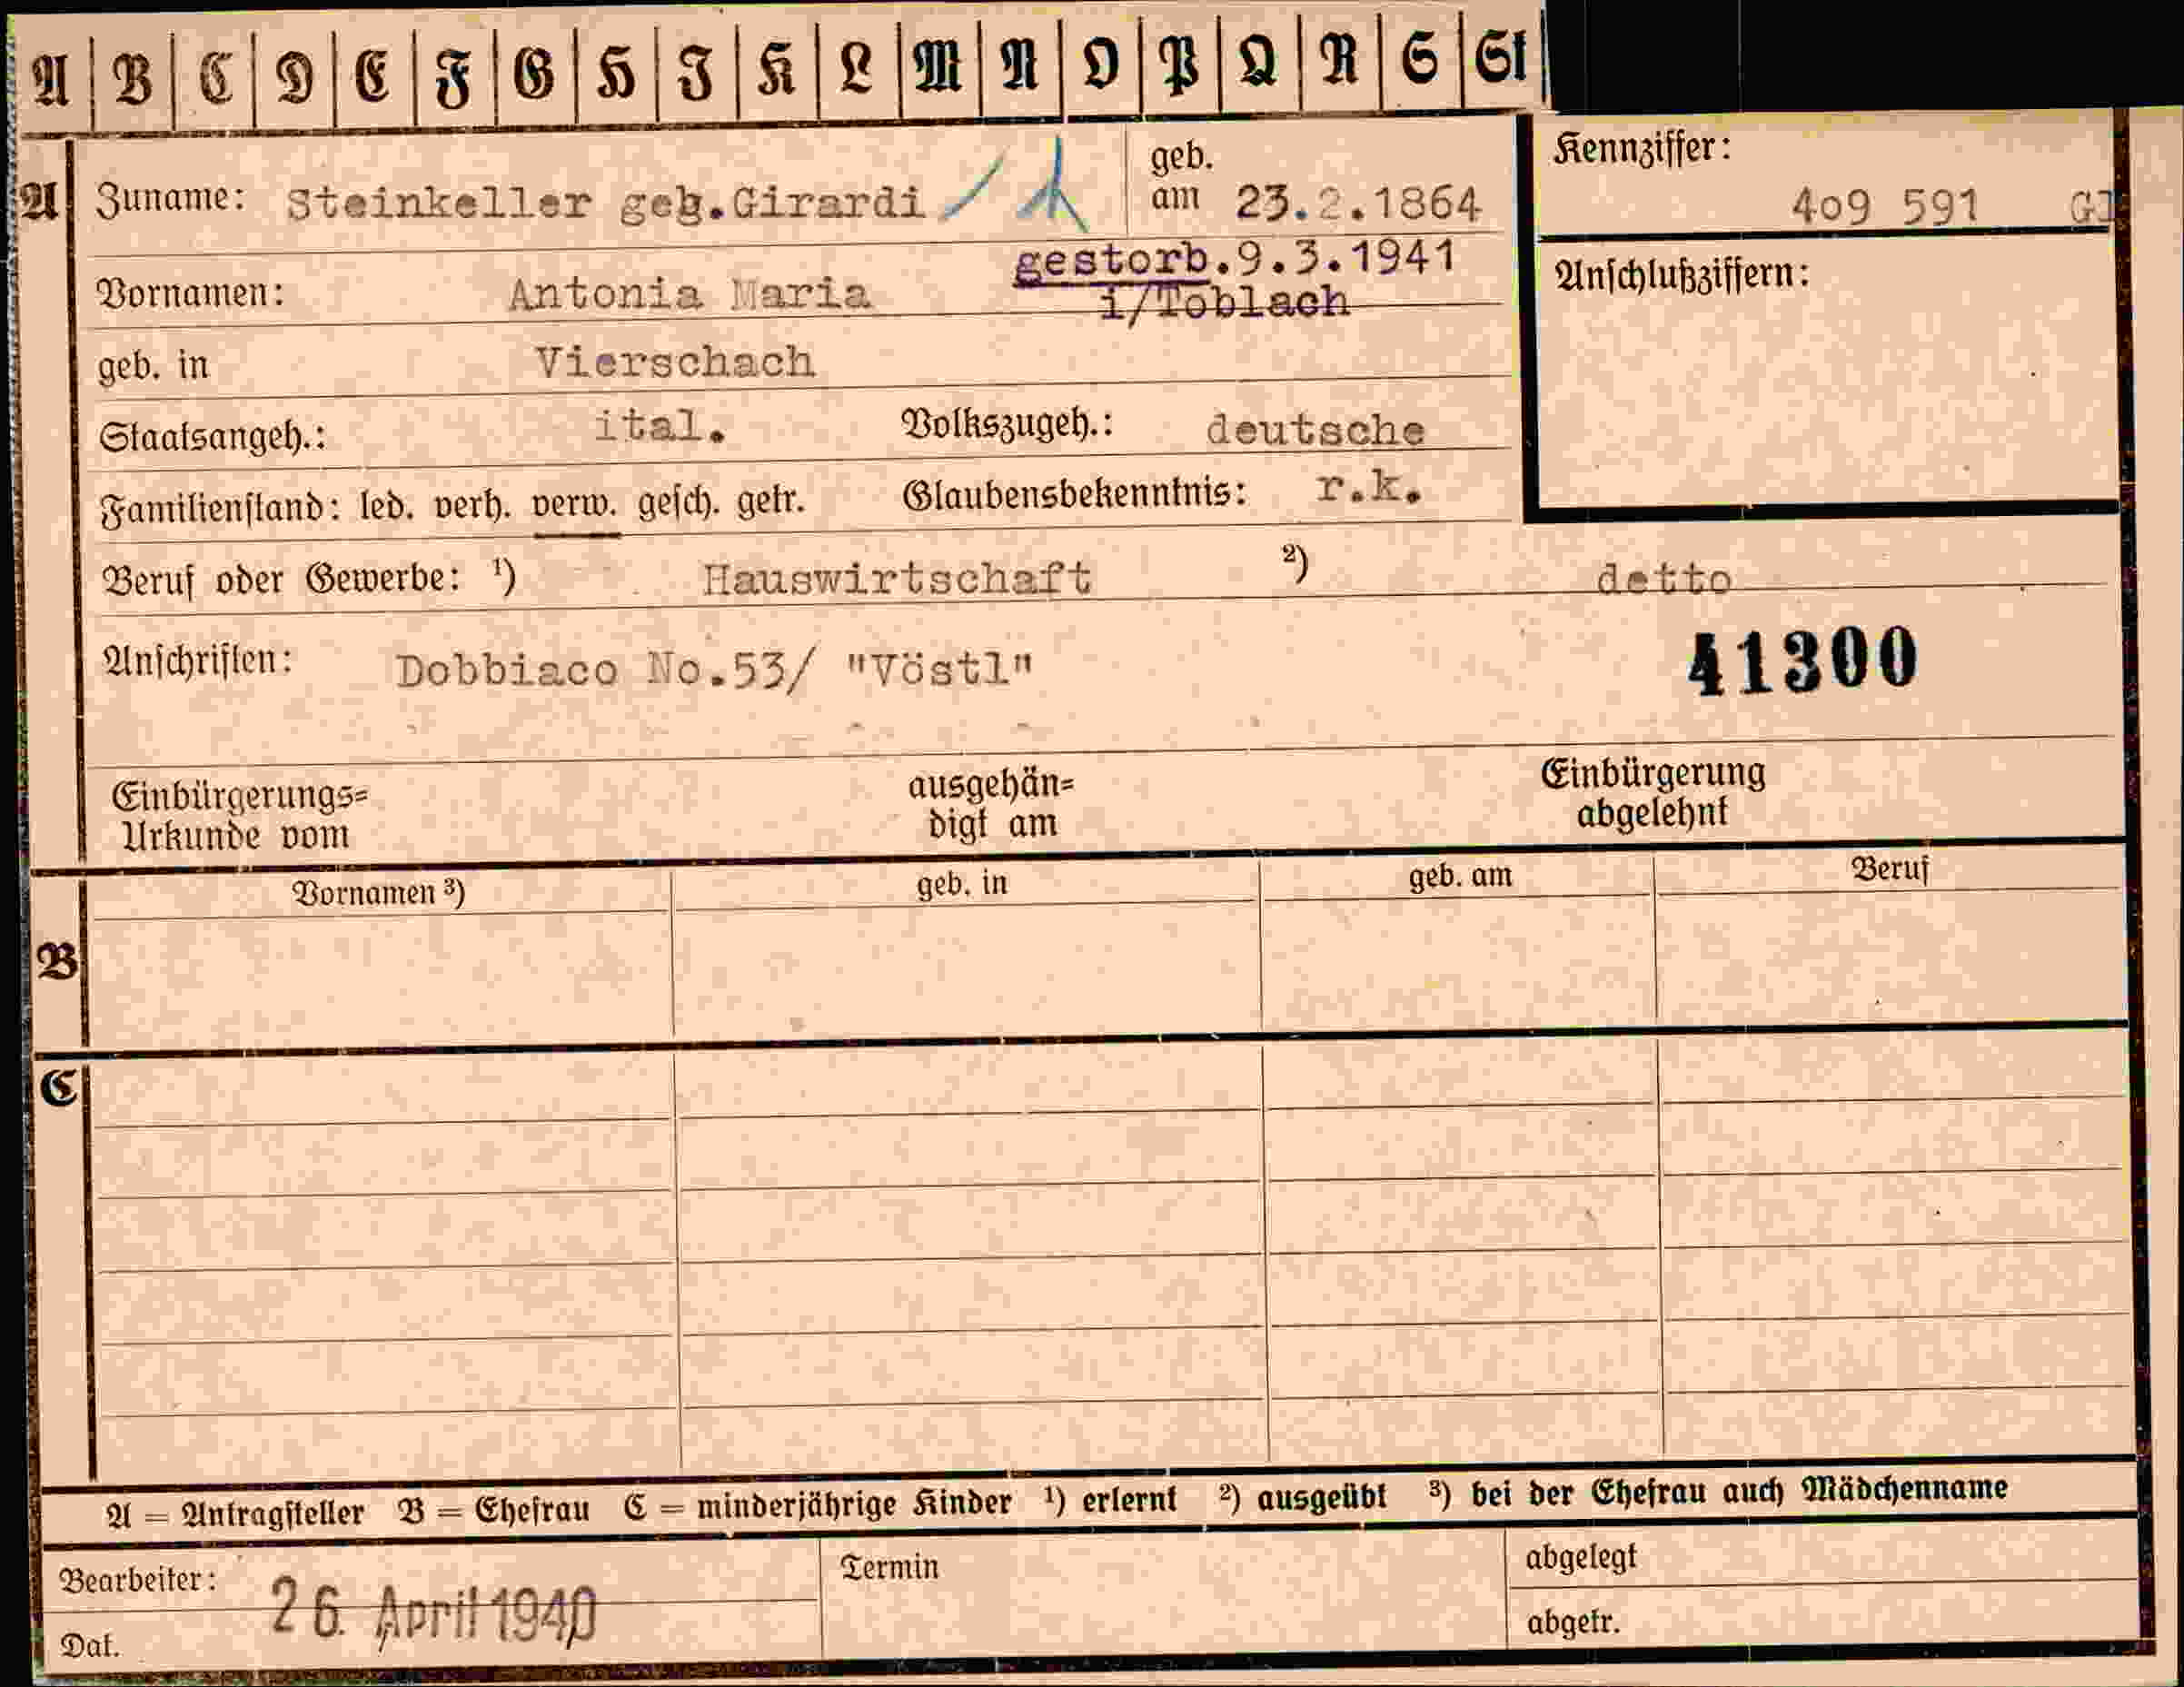 A B C D E F G H I K L M N O P Q R S St
A Zuname: Steinkeller geb.Girardi / geb. am 23.2.1864
Kennziffer: 409 591 GI
gestorb.9.3.1941
Vornamen: Antonia Maria i/Toblach
Anschlußziffern:
geb. in Vierschach
Staatsangeh.: ital. Volkszugeh.: deutsche
Familienstand: led. verh. verw. gesch. getr. Glaubensbekenntnis: r.k.
Beruf oder Gewerbe: ¹) Hauswirtschaft ²) detto
Anschriften: Dobbiaco No.53/ "Vöstl" 41300
Einbürgerungs= ausgehän= Einbürgerung
Urkunde vom digt am abgelehnt
Vornamen ³) geb. in geb. am Beruf
B
C
A = Antragsteller B = Ehefrau C = minderjährige Kinder ¹) erlernt ²) ausgeübt ³) bei der Ehefrau auch Mädchenname
Bearbeiter: Termin abgelegt
26. April 1940
Dat. abgetr.